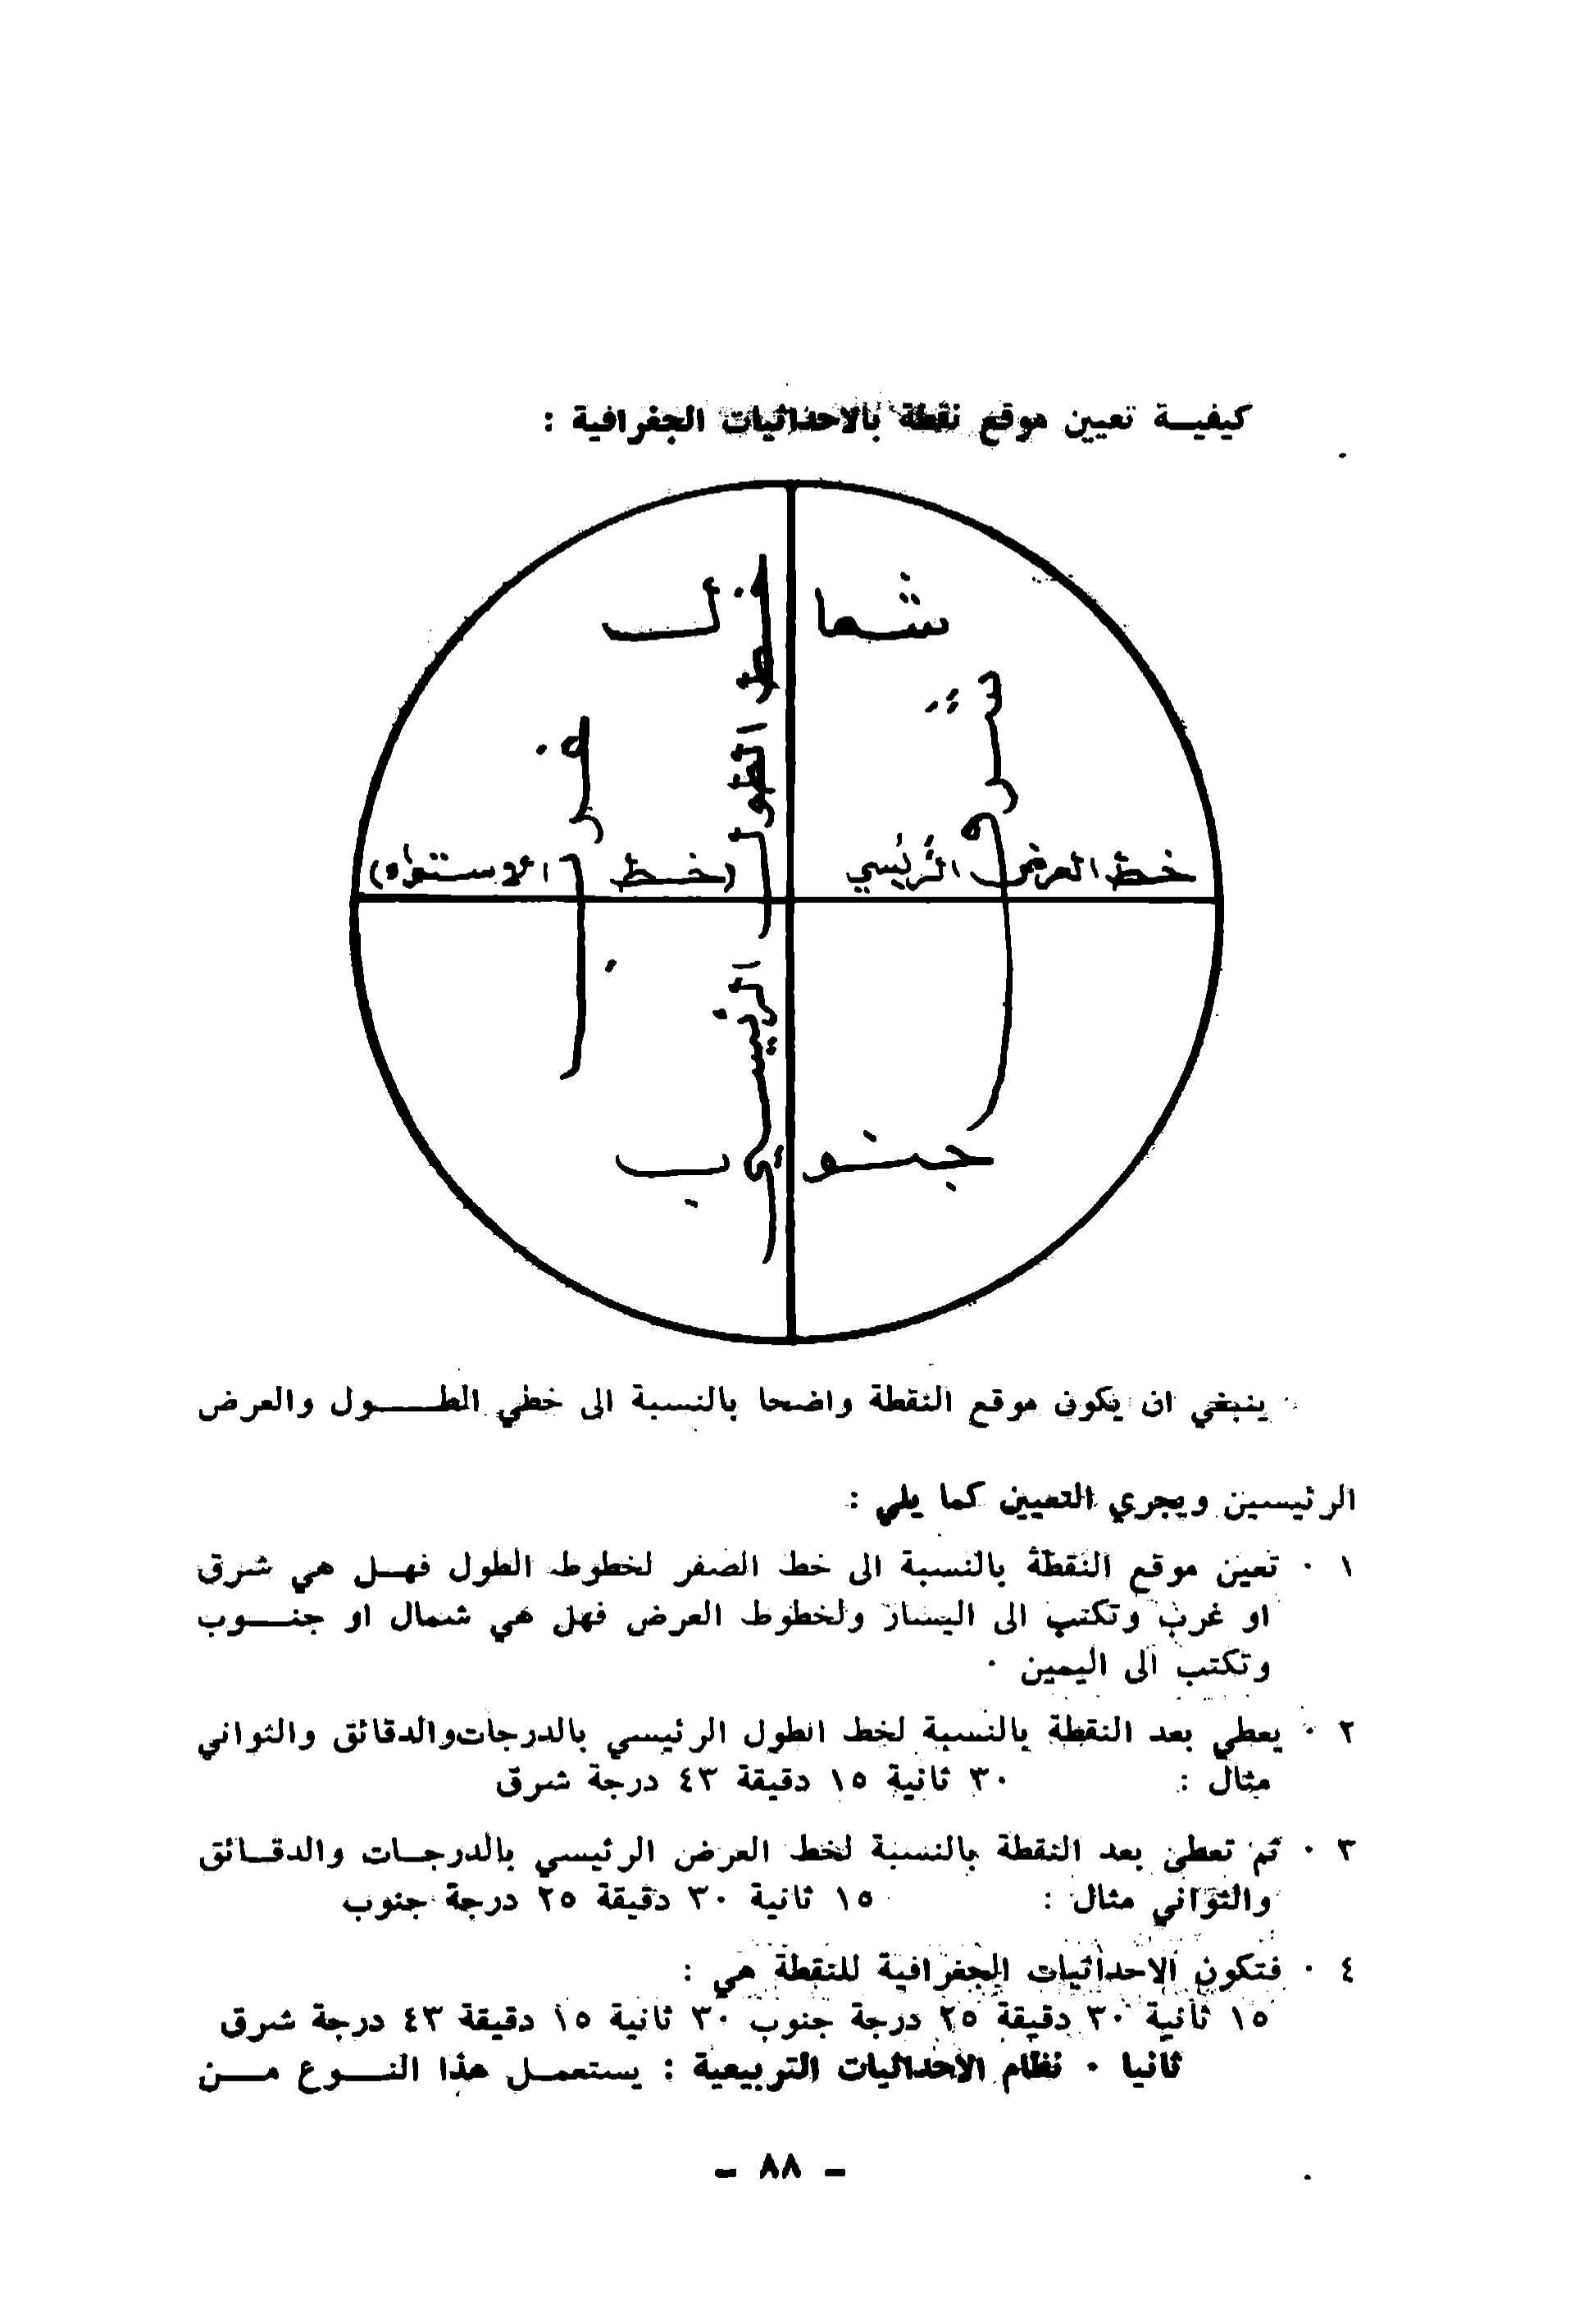 كيفيـة تعيين موقع نقطة بالاحداثيات الجغرافية :
شمال
خط الطول الرئيسي
شرق
غرب
خط العرض الرئيسي (خط الاستواء)
جنوب
ينبغي ان يكون موقع النقطة واضحا بالنسبة الى خطي الطـــول والعرض
الرئيسين ويجري التعيين كما يلي :
١ ٠ تعين موقع النقطة بالنسبة الى خط الصفر لخطوط الطول فهـل هي شرق
او غرب وتكتب الى اليسار ولخطوط العرض فهل هي شمال او جنـــوب
وتكتب الى اليمين ٠
٢ ٠ يعطي بعد النقطة بالنسبة لخط الطول الرئيسي بالدرجات والدقائق والثواني
مثال : ٣٠ ثانية ١٥ دقيقة ٤٣ درجة شرق
٣ ٠ ثم تعطى بعد النقطة بالنسبة لخط العرض الرئيسي بالدرجـات والدقـائق
والثواني مثال : ١٥ ثانية ٣٠ دقيقة ٢٥ درجة جنوب
٤ ٠ فتكون الاحداثيات الجغرافية للنقطة هي :
١٥ ثانية ٣٠ دقيقة ٢٥ درجة جنوب ٣٠ ثانية ١٥ دقيقة ٤٣ درجة شرق
ثانيا ٠ نظام الاحداثيات التربيعية : يستعمـل هذا النـــوع مـــن
– ٨٨ –